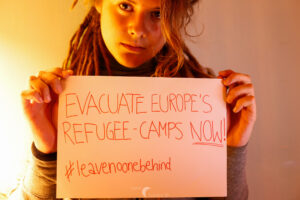 EVACUATE EUROPE'S
REFUGEE-CAMPS NOW!
#leavenoonebehind